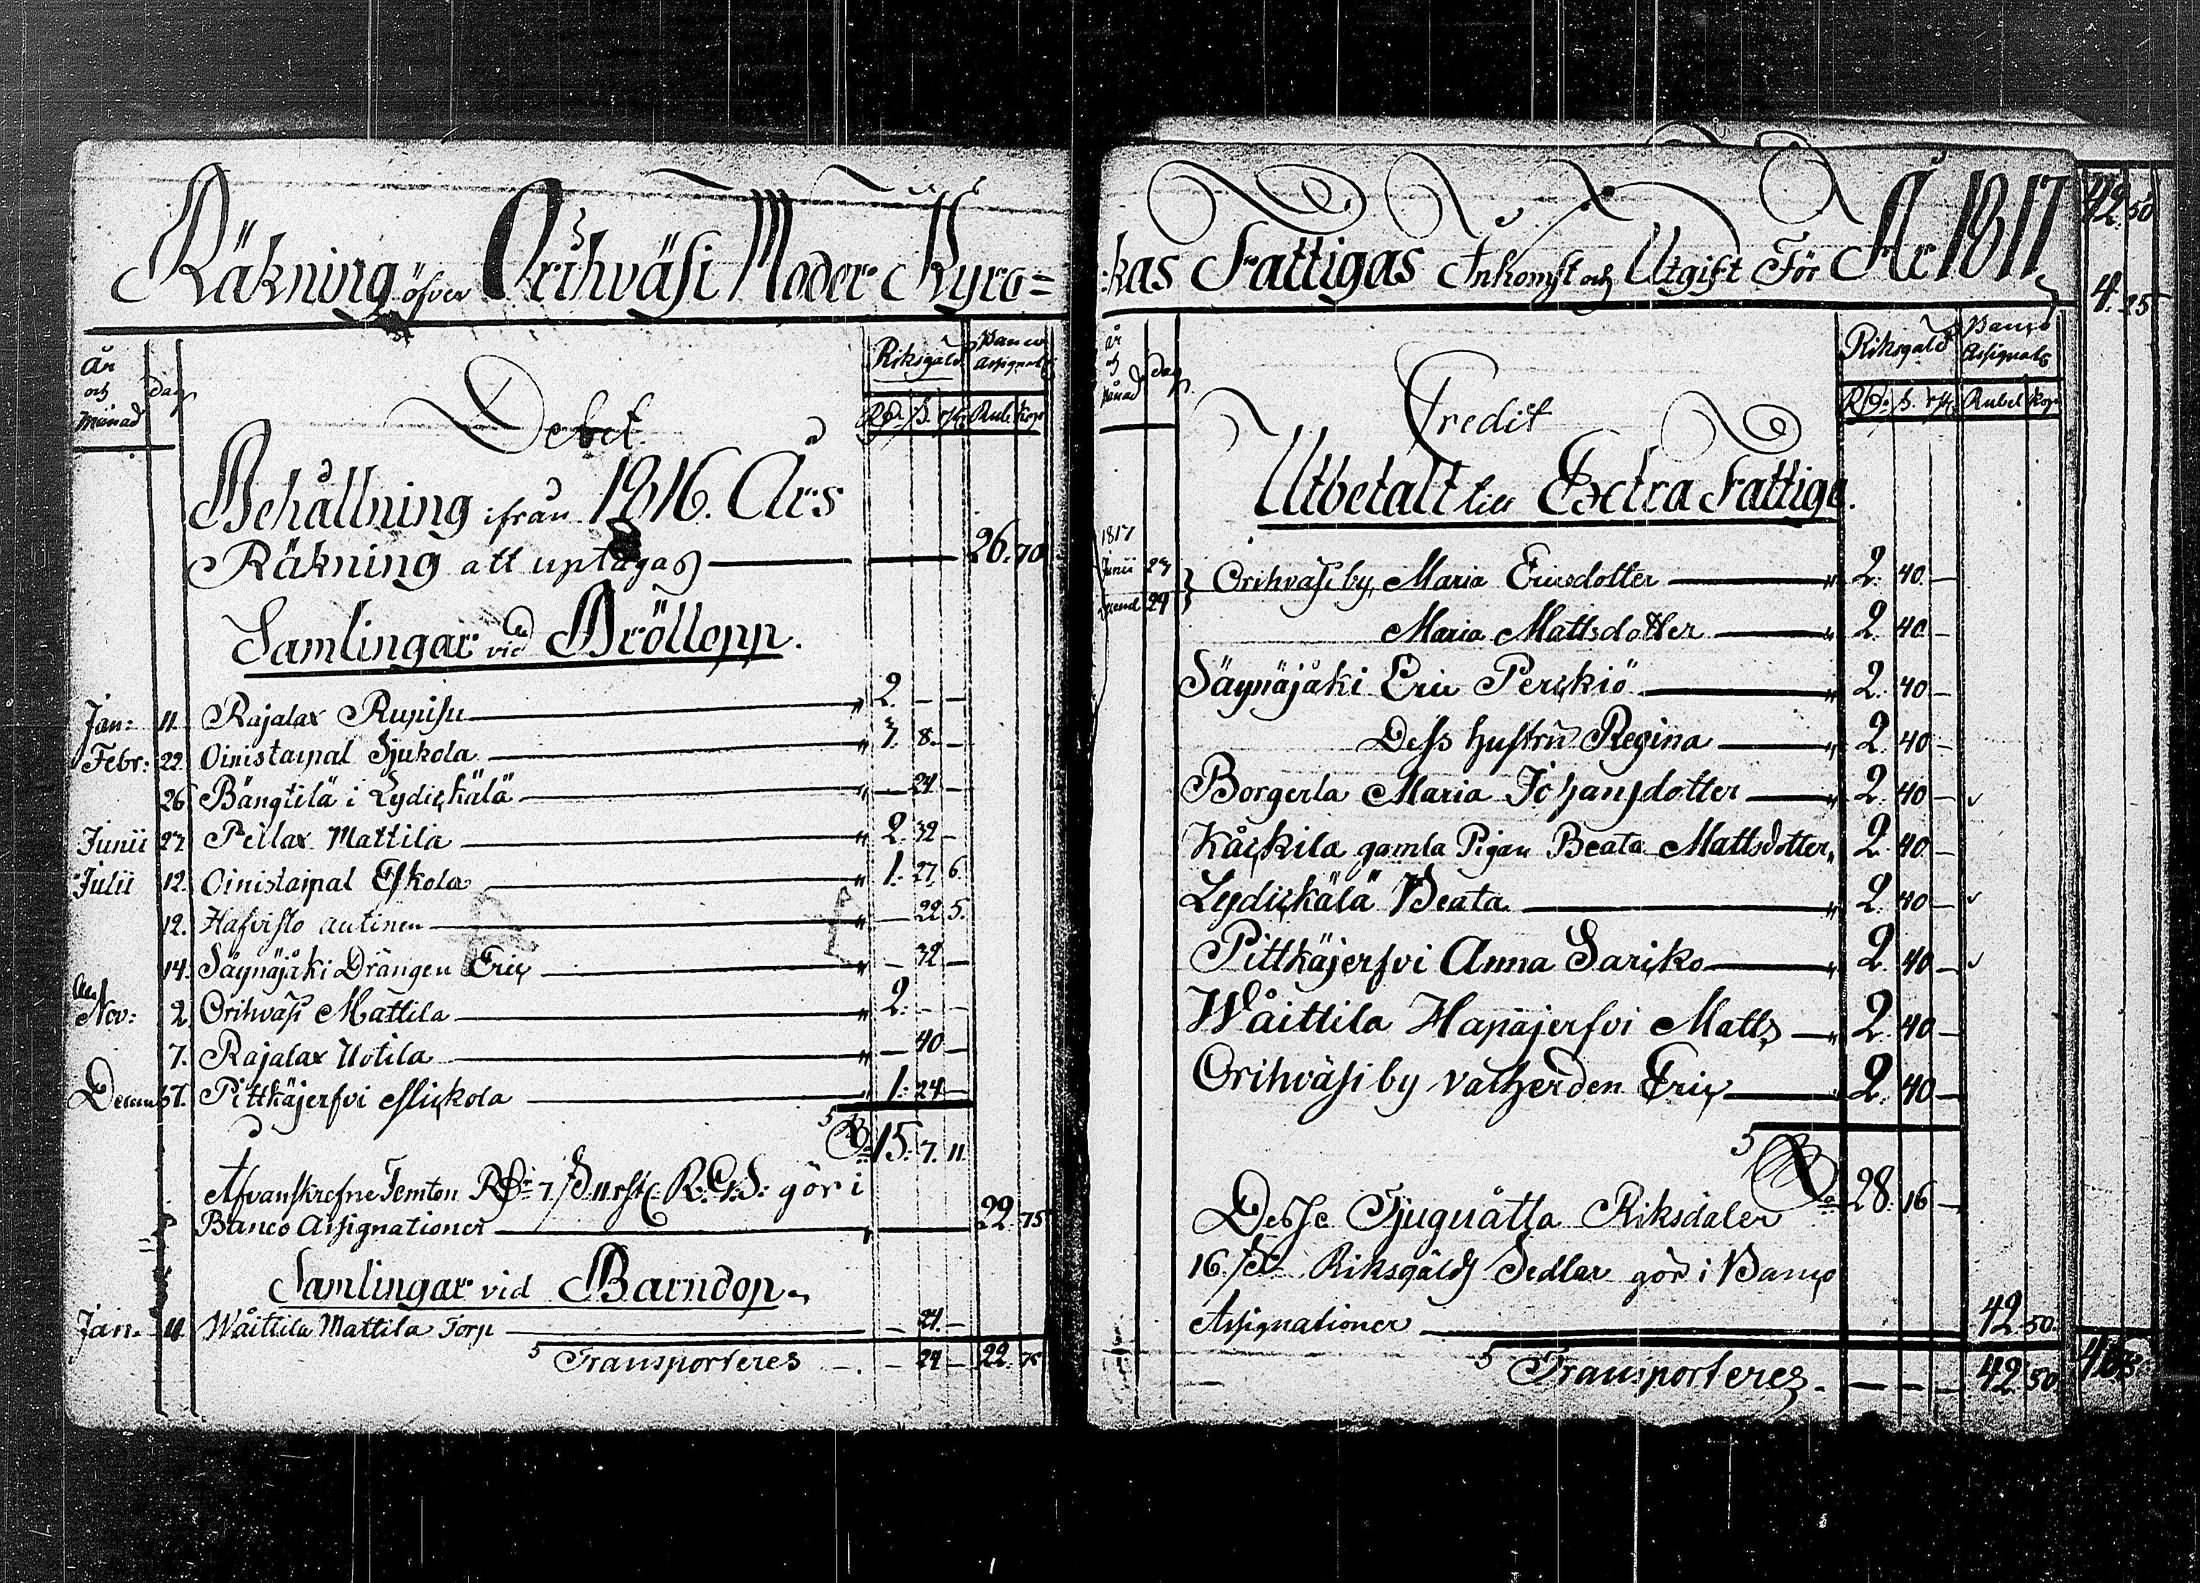 Räkning öfver Orihväsi Moder Kyro=
År och Månad dag Riksgäld Banco Assignat:
Rd: ß. rst: Rubl kop
Debet
Behållning ifrån 1816. Års
Räkning att uptagas 26. 70
Samlingar vid Bröllopp.
Jan: 11. Rajalax Rupisu " 2. — —
Febr: 22. Oinistaipal Sjukola " 3. 8. —
26 Bängtilä i Lydickälä " — 24 —
Junii 27 Peilax Mattila " 2. 32 —
Julii 12. Oinistaipal Eskola " 1. 27. 6.
12. Hafvisto Antinen " — 22 5.
14. Säynäjäki Drängen Eric " — 32 —
Nov: 2 Orihväsi Mattila " 2. — —
7. Rajalax Uotila " — 40 —
Decemb 7. Pittkäjerfvi Mickola " 1. 24 —
Sa 15. 7. 11.
Ofvanskrefne Femton Rd: 7 ß 11 rst: R:G:S: gör i
Banco Assignationer 22. 75
Samlingar vid Barndop.
Jan. 11 Wåittila Mattila Torp — 24. —
Transporteres — 24 — 22. 75
:kas Fattigas Inkomst och Utgift För År 1817
år och Månad dag Riksgäld Banco Assignat:
Rd: ß. rst: Rubel kop
Credit
Utbetalt till Extra Fattige.
1817
Junii 27 Orihväsi by, Maria Ericsdotter " 2. 40. —
29 Maria Mattsdotter " 2. 40 —
Säynäjäki Eric Perckiö " 2. 40 —
Dess hustru Regina " 2. 40 —
Borgerla Maria Johansdotter " 2. 40 —
Kåickila gamla Pigan Beata Mattsdotter " 2. 40. —
Lydickälä Beata " 2. 40 —
Pittkäjerfvi Anna Saricko " 2. 40 —
Wåittila Hapajerfvi Matts " 2. 40 —
Orihväsi by vallherden Eric 2. 40 —
Sa 28. 16 —
Desse Tjuguåtta Riksdaler
16 ß Riksgälds Sedlar gör i Banco
Assignationer 42 50.
Transporteres — — — 42. 50
42. 50
4. 25